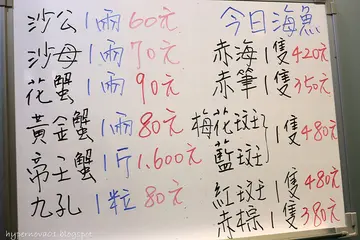 沙公1兩60元
沙母1兩70元
花蟹1兩90元
黃金蟹1兩80元
帝王蟹1斤1.600元
九孔1粒80元
今日海魚
赤海1隻420元
赤筆1隻350元
梅花斑
藍斑
1隻480元
紅斑1隻480元
赤棕1隻380元
hypernova01.blogspot